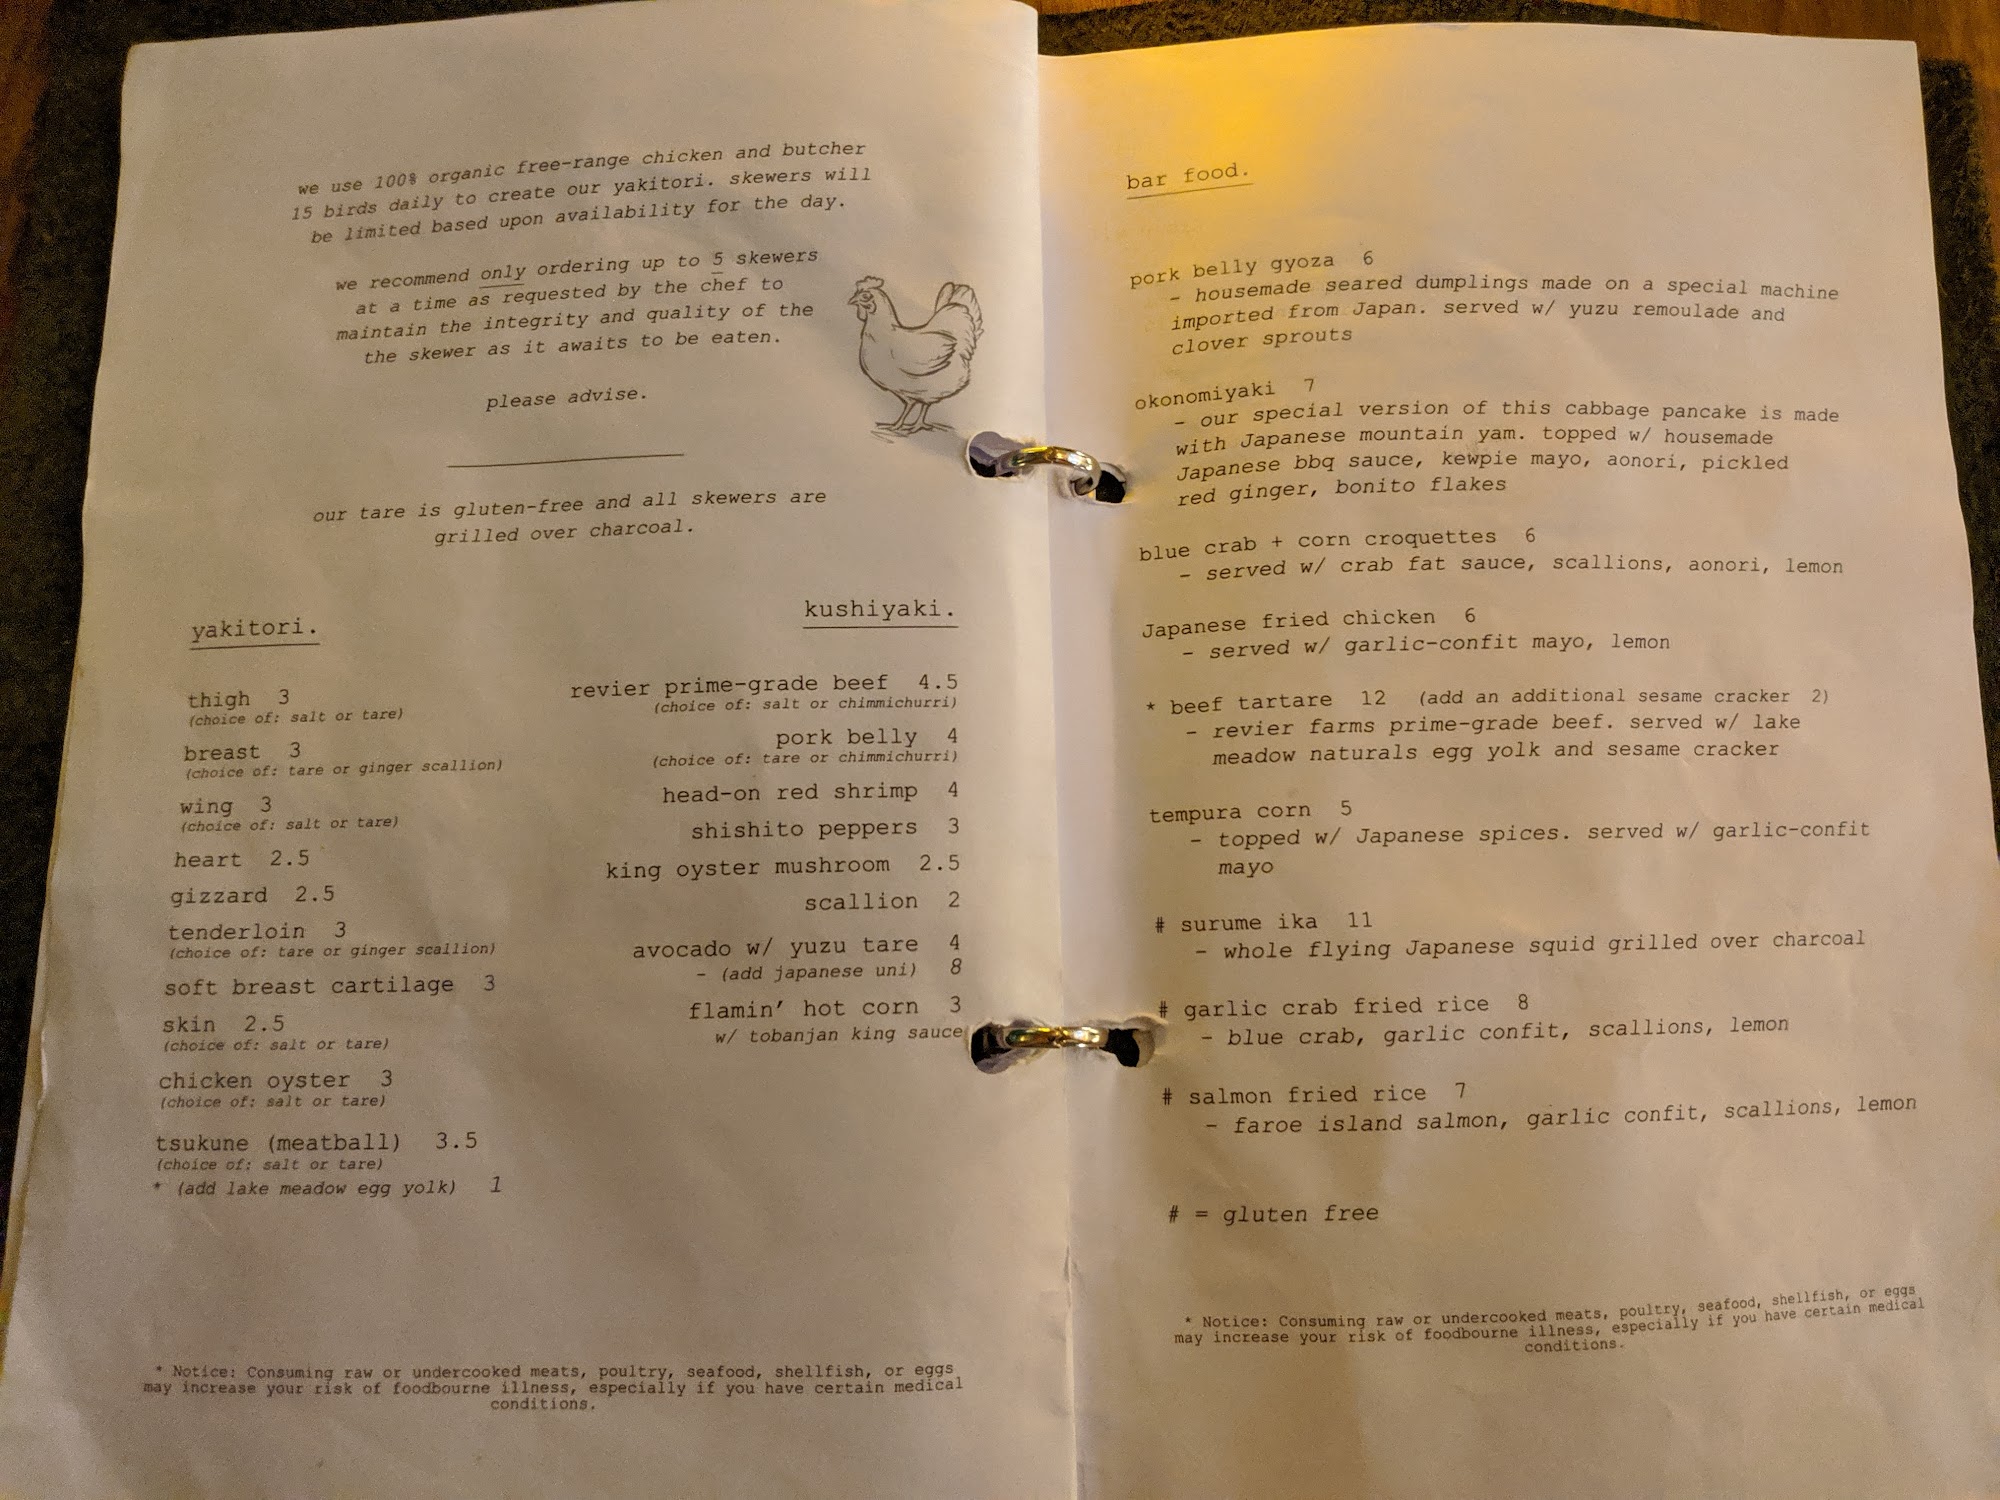 we use 100% organic free-range chicken and butcher
15 birds daily to create our yakitori. skewers will
be limited based upon availability for the day.
we recommend only ordering up to 5 skewers
at a time as requested by the chef to
maintain the integrity and quality of the
the skewer as it awaits to be eaten.
please advise.
our tare is gluten-free and all skewers are
grilled over charcoal.
yakitori.
thigh 3
(choice of: salt or tare)
breast 3
(choice of: tare or ginger scallion)
wing 3
(choice of: salt or tare)
heart 2.5
gizzard 2.5
tenderloin 3
(choice of: tare or ginger scallion)
soft breast cartilage 3
skin 2.5
(choice of: salt or tare)
chicken oyster 3
(choice of: salt or tare)
tsukune (meatball) 3.5
(choice of: salt or tare)
* (add lake meadow egg yolk) 1
kushiyaki.
revier prime-grade beef 4.5
(choice of: salt or chimmichurri)
pork belly 4
(choice of: tare or chimmichurri)
head-on red shrimp 4
shishito peppers 3
king oyster mushroom 2.5
scallion 2
avocado w/ yuzu tare 4
- (add japanese uni) 8
flamin' hot corn 3
w/ tobanjan king sauce
* Notice: Consuming raw or undercooked meats, poultry, seafood, shellfish, or eggs
may increase your risk of foodbourne illness, especially if you have certain medical
conditions.
bar food.
pork belly gyoza 6
- housemade seared dumplings made on a special machine
imported from Japan. served w/ yuzu remoulade and
clover sprouts
okonomiyaki 7
- our special version of this cabbage pancake is made
with Japanese mountain yam. topped w/ housemade
Japanese bbq sauce, kewpie mayo, aonori, pickled
red ginger, bonito flakes
blue crab + corn croquettes 6
- served w/ crab fat sauce, scallions, aonori, lemon
Japanese fried chicken 6
- served w/ garlic-confit mayo, lemon
* beef tartare 12 (add an additional sesame cracker 2)
- revier farms prime-grade beef. served w/ lake
meadow naturals egg yolk and sesame cracker
tempura corn 5
- topped w/ Japanese spices. served w/ garlic-confit
mayo
# surume ika 11
- whole flying Japanese squid grilled over charcoal
# garlic crab fried rice 8
- blue crab, garlic confit, scallions, lemon
# salmon fried rice 7
- faroe island salmon, garlic confit, scallions, lemon
# = gluten free
* Notice: Consuming raw or undercooked meats, poultry, seafood, shellfish, or eggs
may increase your risk of foodbourne illness, especially if you have certain medical
conditions.